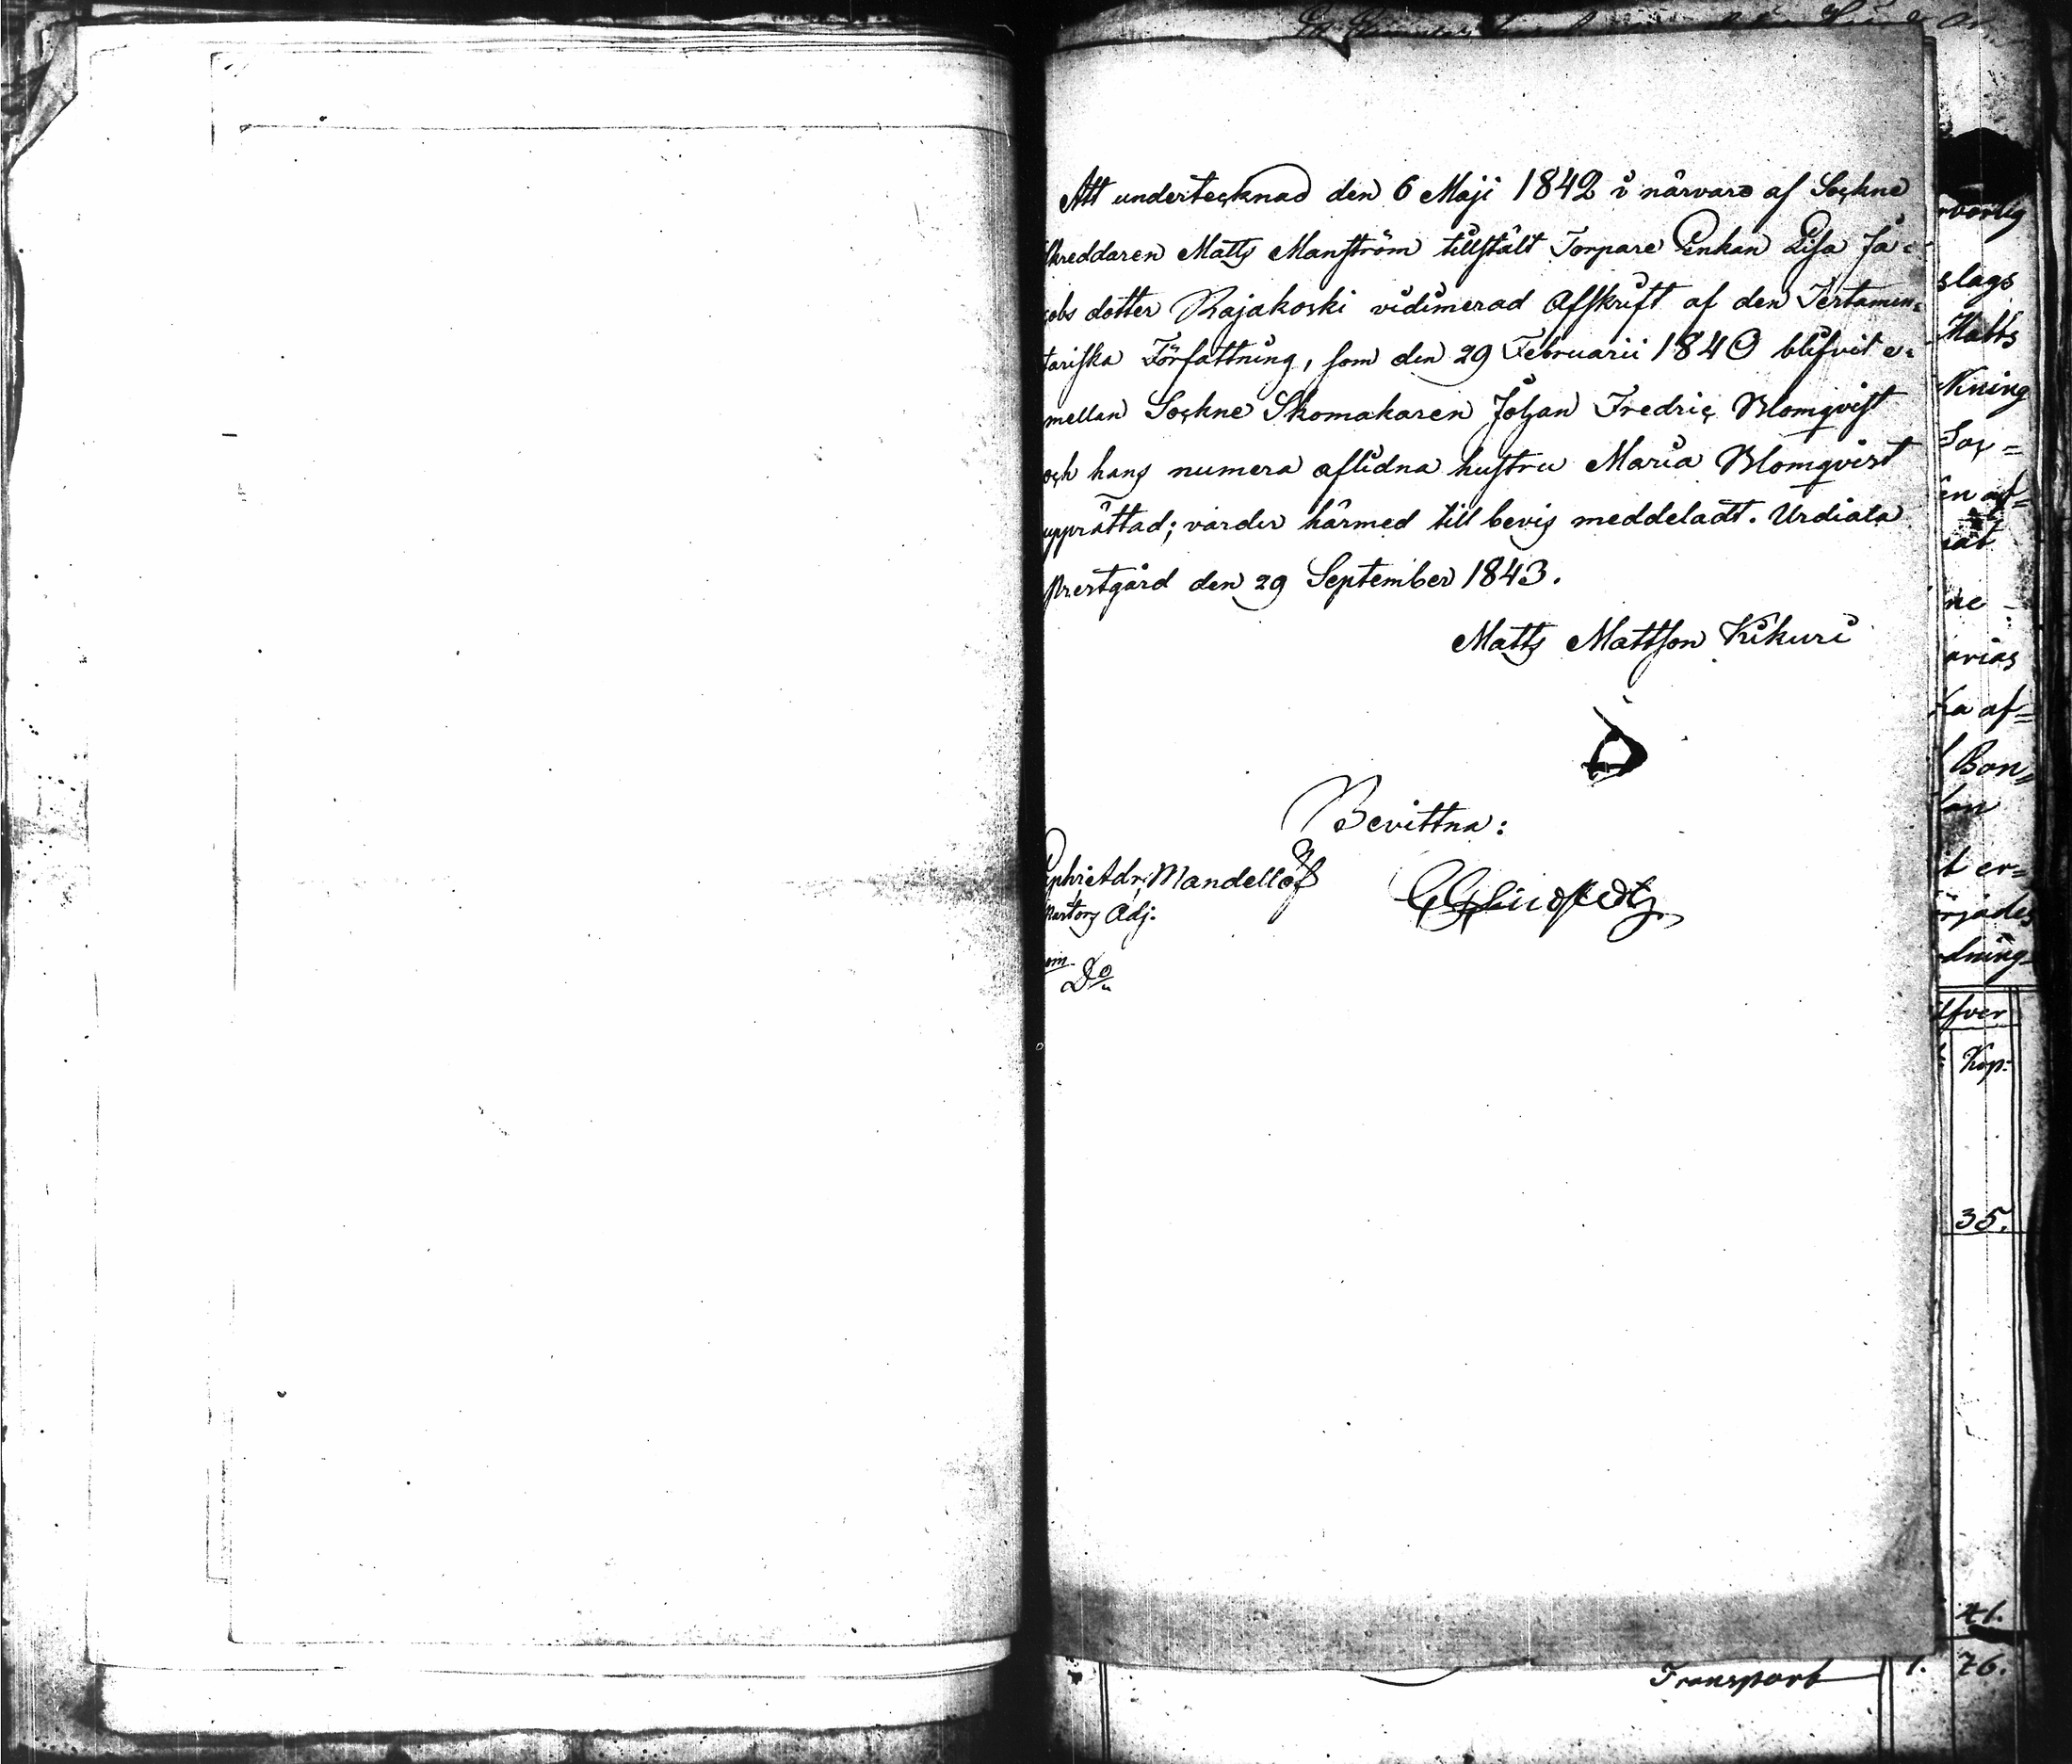 Att undertecknad den 6 Maji 1842 i närvaro af Sockne
Skreddaren Matts Manström tillstält Torpare Enkan Lisa Ja=
cobs dotter Rajakoski vidimerad Afskrift af den Testamen=
tariska Författning, som den 29 Februarii 1840 blifvit e=
mellan Sockne Skomakaren Johan Fredric Blomqvist
och hans numera aflidna hustru Maria Blomqvist
upprättad; varder härmed till bevis meddeladt. Urdiala
Prestgård den 29 September 1843.
Matts Mattson Kikuri
Bevittna:
Ephr: Adr: Mandellöf
Pastors Adj.
Do
slags
Matts
kning
Soc=
en af=
ne
arias
ka af=
Bon=
t er=
örjades
dning
lfver
Kop:
35.
41.
Transport 1. 76.